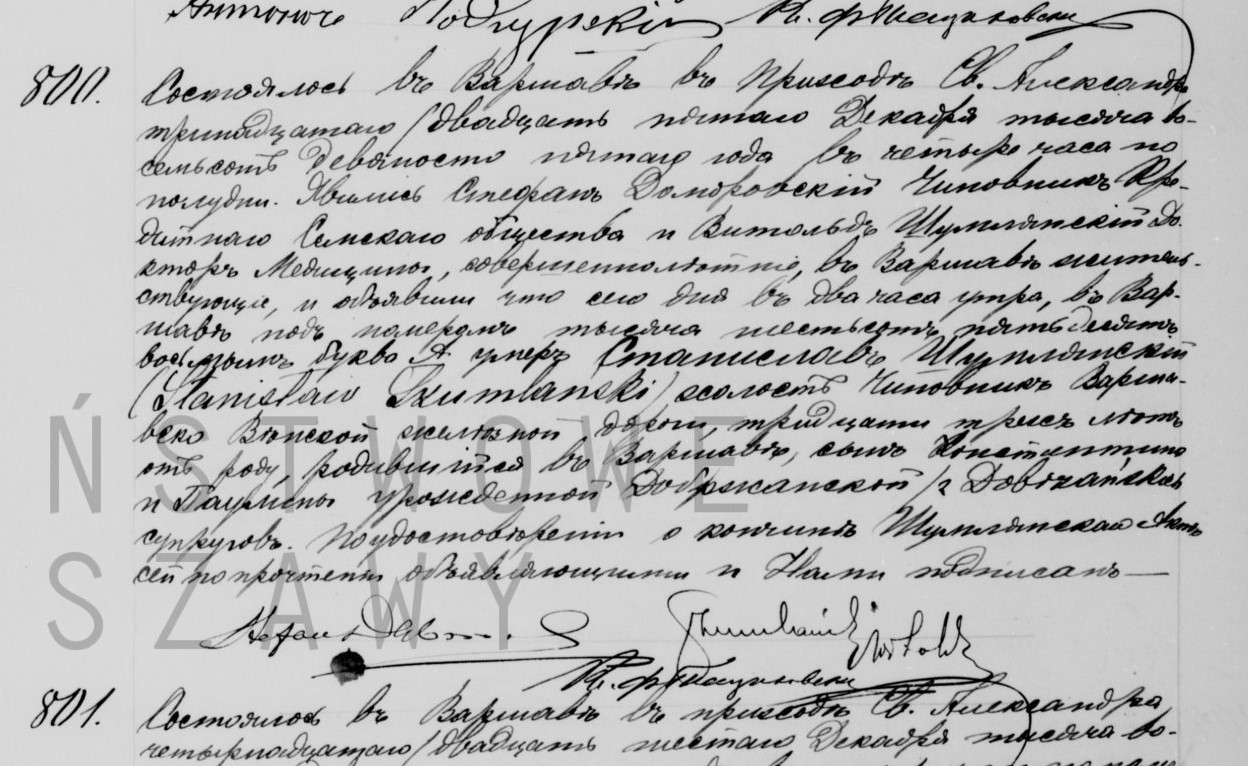 Антоног Подгурскій Кс.
800.
Состоялось въ Варшавѣ въ приходѣ Св. Александра
тринадцатаго /двадцать пятаго Декабря тысяча во-
семьсотъ девяносто пятаго года въ четыре часа по
полудни. Явились Стефанъ Домбровскій Чиновникъ Кре-
дитнаго Земскаго общества и Витольдъ Шумлянскій До-
кторъ Медицины, совершеннолѣтніе, въ Варшавѣ житель-
ствующіе, и объявили что сего дня въ два часа утра, въ Вар-
шавѣ подъ номеромъ тысяча шестьсотъ пятьдесятъ
восьмымъ буква А умеръ Станиславъ Шумлянскій
(Stanisław Szumlanski) холостъ Чиновникъ Варша-
вско Вѣнской желѣзной дороги, тридцати трехъ лѣтъ
отъ роду, родившійся въ Варшавѣ, сынъ Константина
и Паулины урожденной Добржанской /z Dobrzańskich
супруговъ. По удостовѣреніи о кончинѣ Шумлянскаго Актъ
сей по прочтеніи объявляющими и Нами подписанъ —
Stefan Szumlański Witold
Кс.
801.
Состоялось въ Варшавѣ въ приходѣ Св. Александра,
четырнадцатаго /двадцать шестаго Декабря тысяча во-
ŃSTWOWE
SZAWY